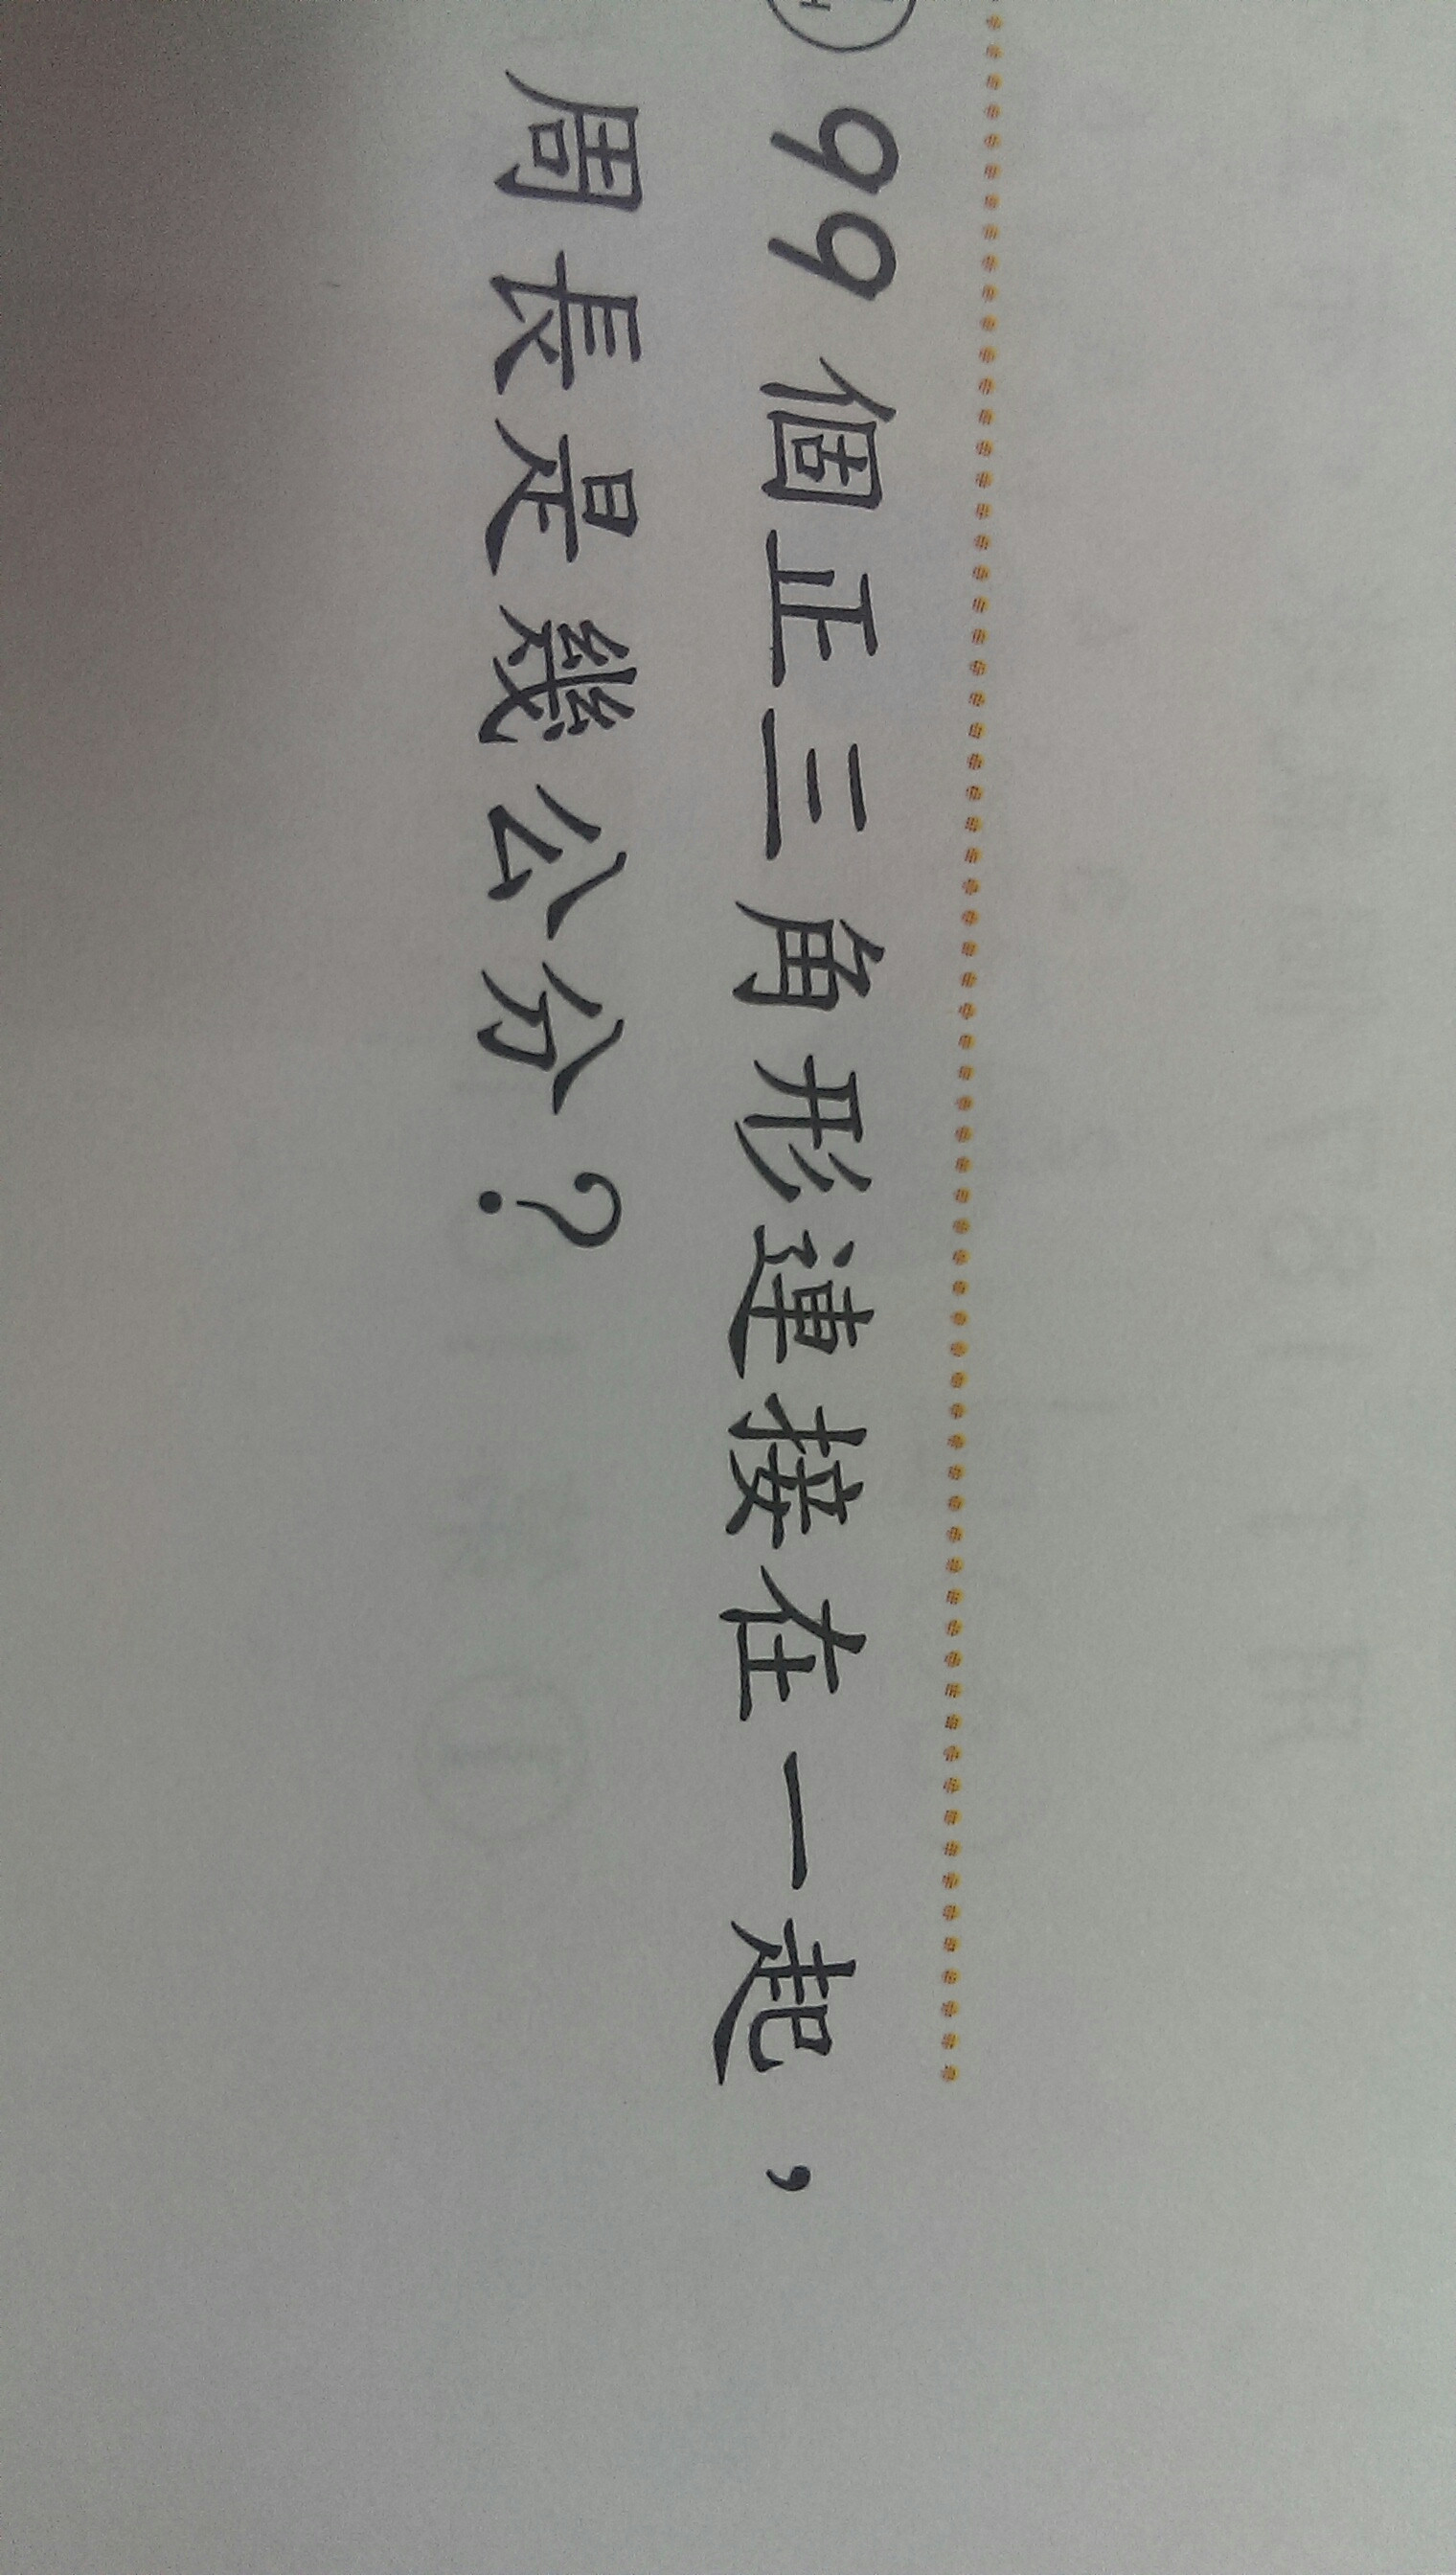 99個正三角形連接在一起，
周長是幾公分？